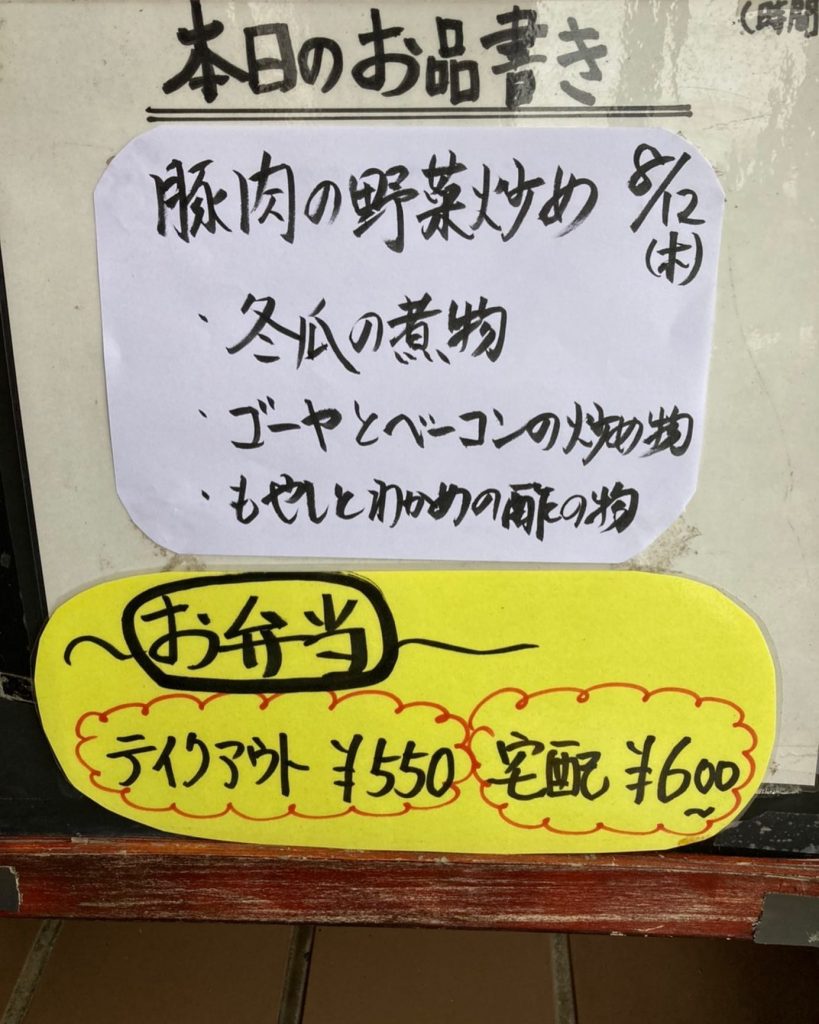 (時間
本日のお品書き
豚肉の野菜炒め 8/12(木)
・冬瓜の煮物
・ゴーヤとベーコンの炒め物
・もやしとわかめの酢の物
〜お弁当〜
テイクアウト ¥550
宅配 ¥600〜